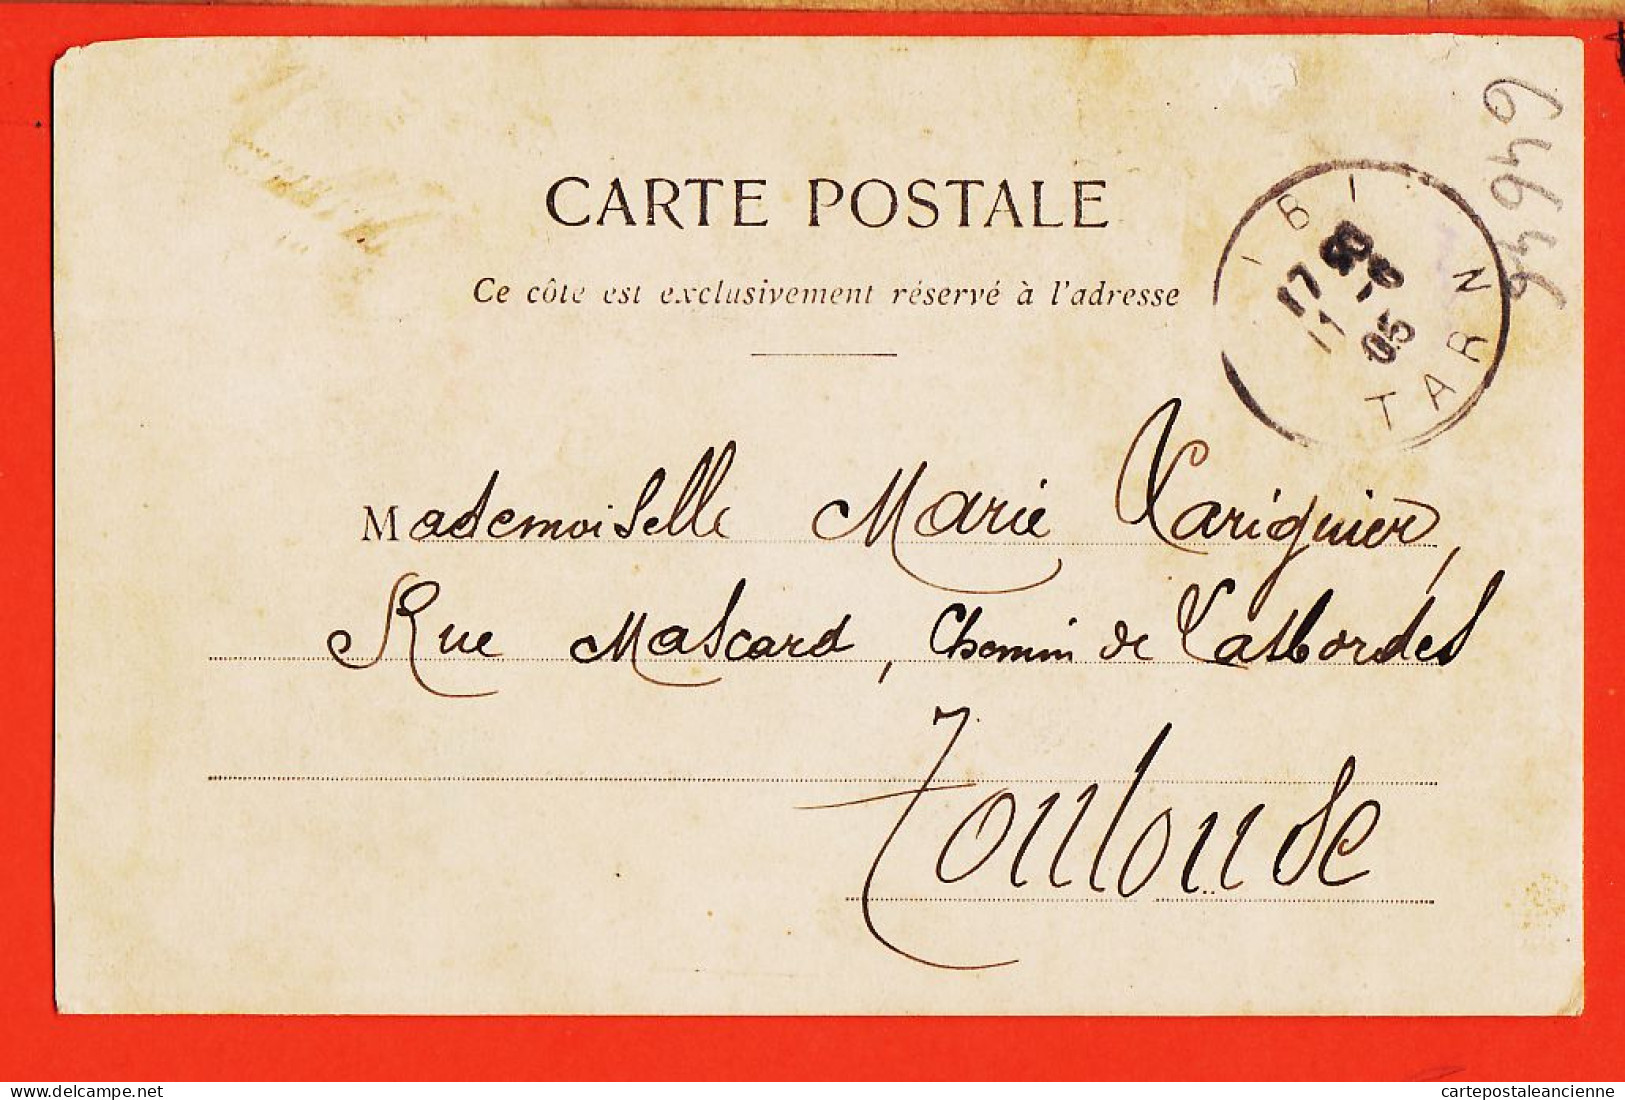 CARTE POSTALE
Ce côté est exclusivement réservé à l'adresse
BI
TARN
17
-6
11
05
6446
Mademoiselle Marie Variguier,
Rue Mascard, Chemin de Lasbordes
Toulouse
cartepostaleancienne